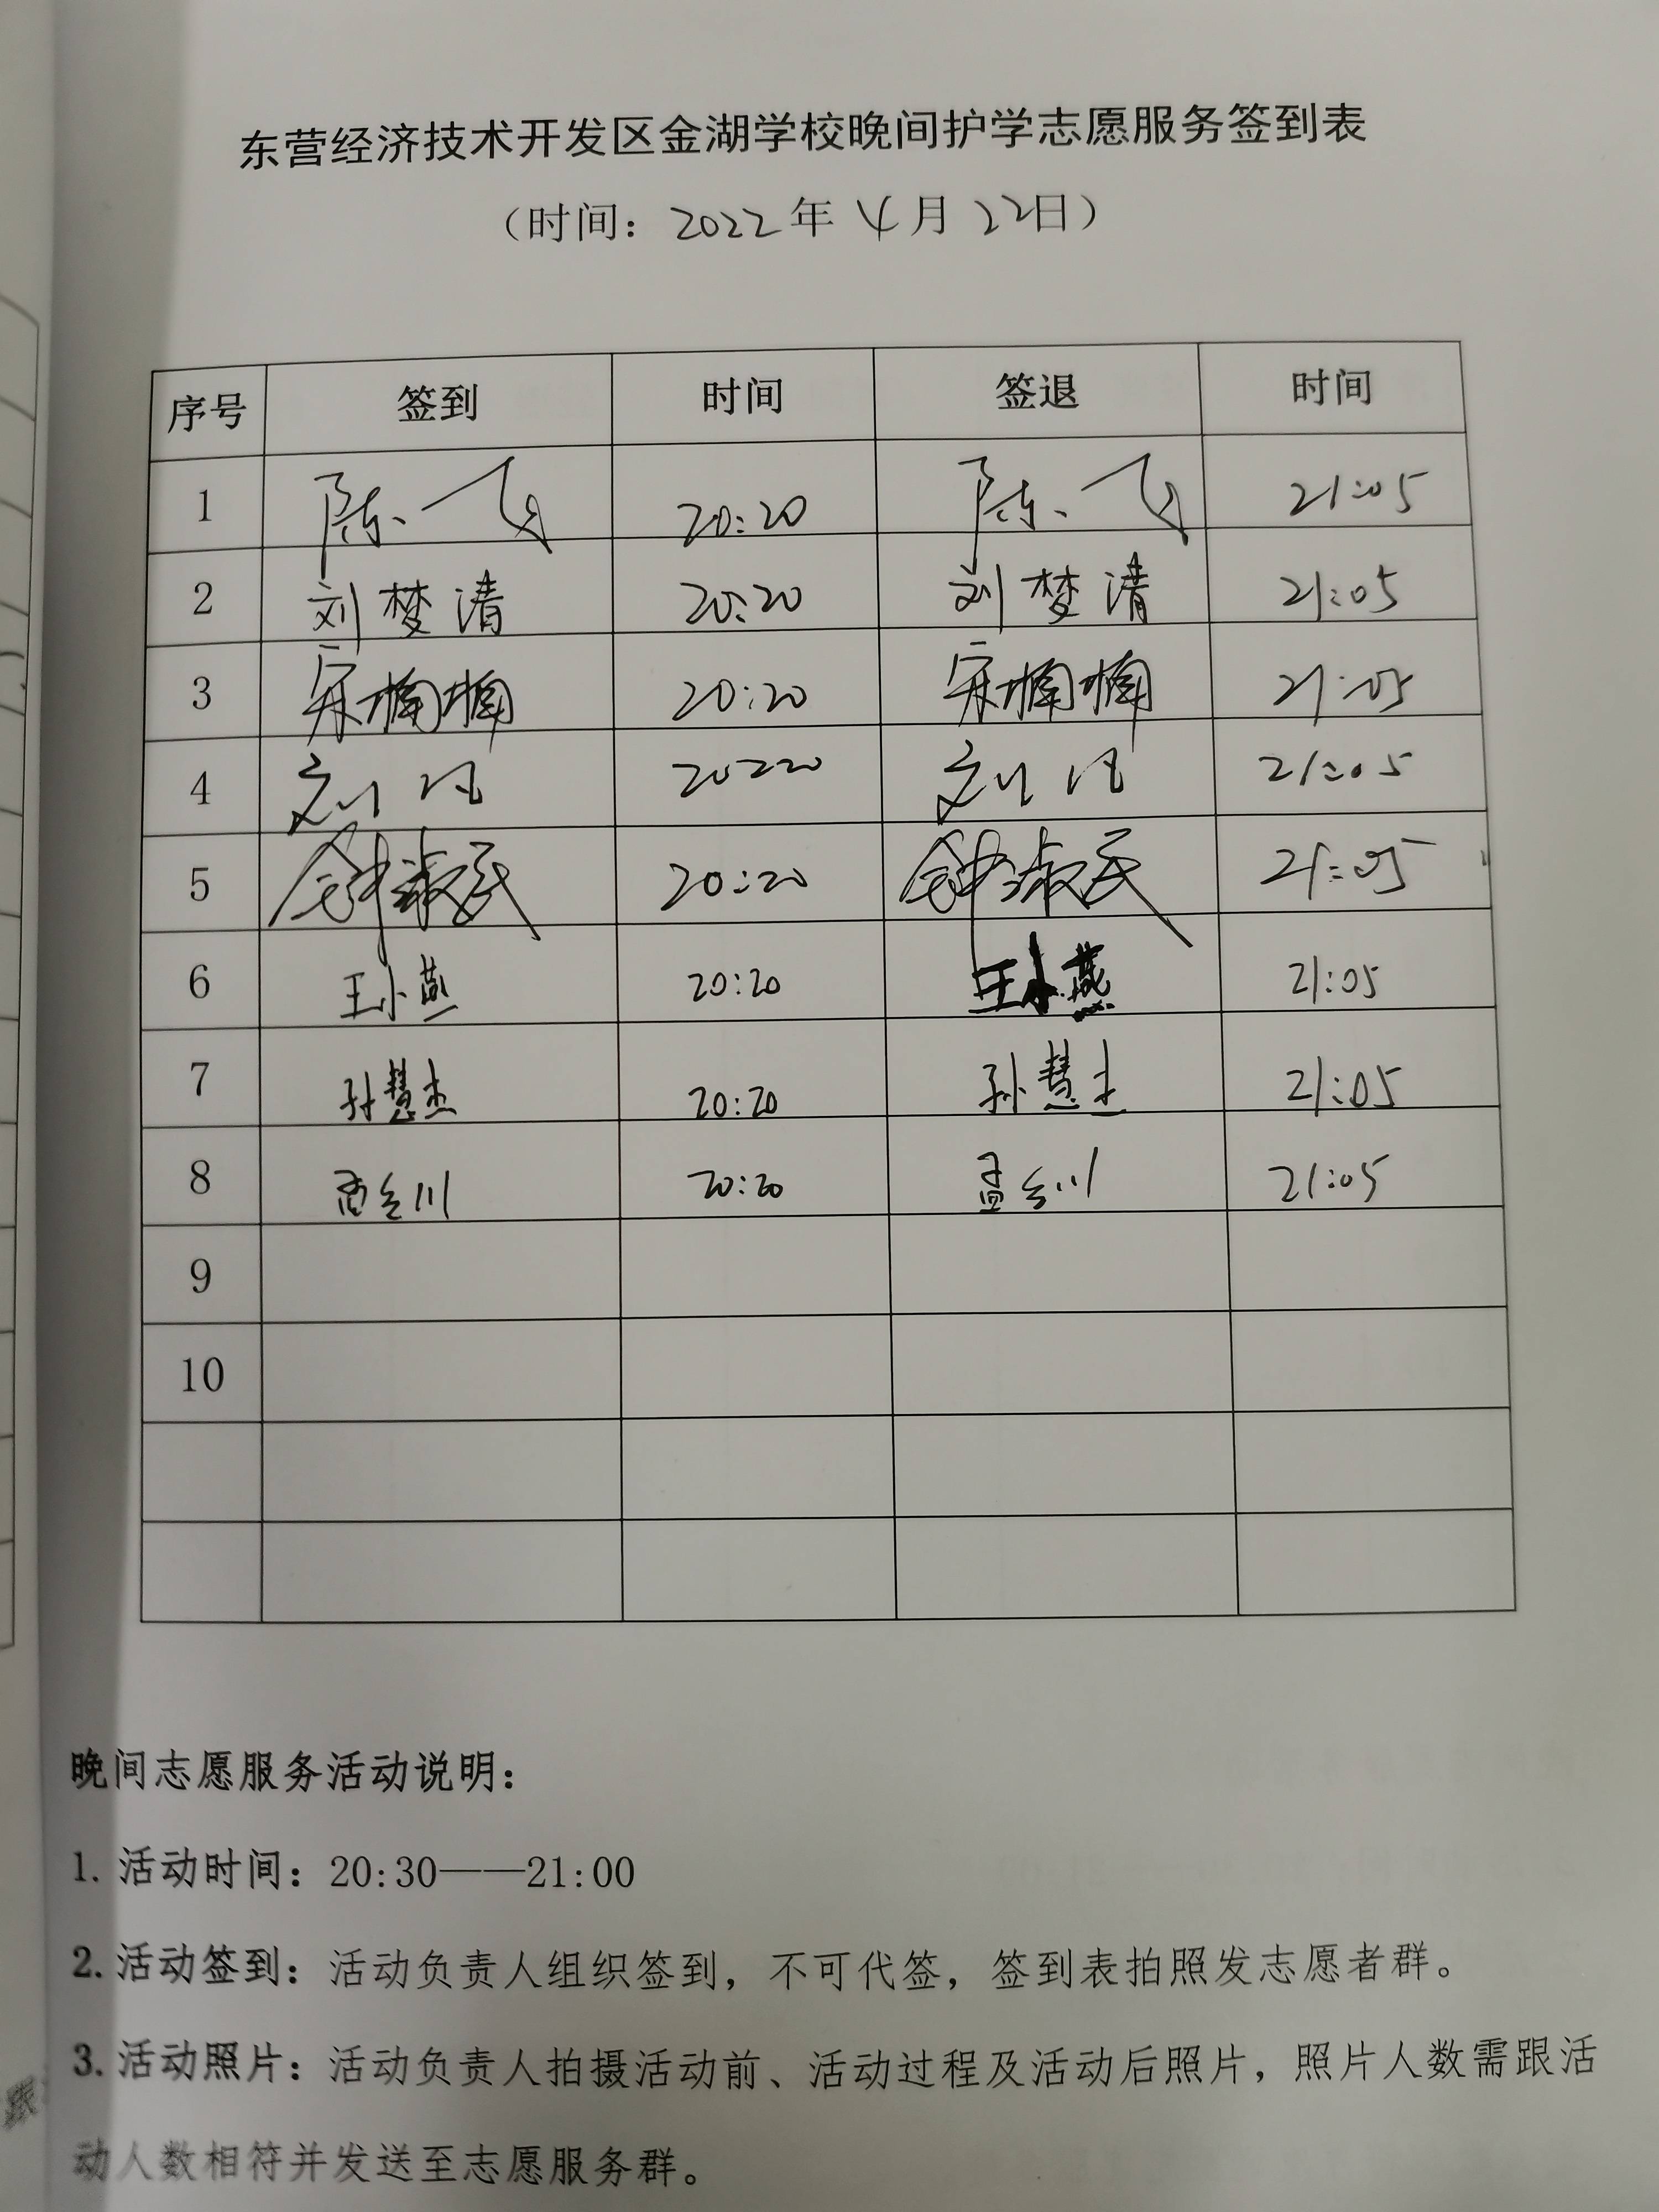 东营经济技术开发区金湖学校晚间护学志愿服务签到表
（时间：2022年4月22日）
序号 签到 时间 签退 时间
1 陈一飞 20:20 陈一飞 21:05
2 刘梦清 20:20 刘梦清 21:05
3 宋楠楠 20:20 宋楠楠 21:05
4 20:20 21:05
5 20:20 21:05
6 王小燕 20:20 王小燕 21:05
7 孙慧杰 20:20 孙慧杰 21:05
8 20:20 21:05
9
10
晚间志愿服务活动说明：
1. 活动时间：20:30——21:00
2. 活动签到：活动负责人组织签到，不可代签，签到表拍照发志愿者群。
3. 活动照片：活动负责人拍摄活动前、活动过程及活动后照片，照片人数需跟活
动人数相符并发送至志愿服务群。